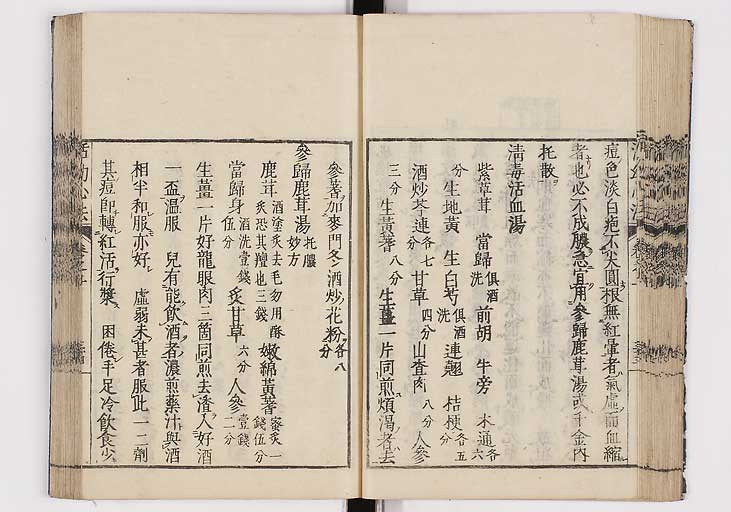 痘色淡白疱不尖圓根無紅暈者氣虛而血縮
者也必不成膿急宜用參歸鹿茸湯或千金內
托散
清毒活血湯
紫草茸 當歸俱酒洗 前胡 牛旁 木通各六
分 生地黃 生白芍俱酒洗 連翹 桔梗各五分
酒炒芩連各七分 甘草四分 山查肉八分 人參
三分 生黃蓍八分 生薑一片同煎煩渴者去
參蓍加麥門冬酒炒花粉各八分
參歸鹿茸湯托膿妙方
鹿茸酒塗炙去毛勿用酥炙恐其羶也三錢 嫩綿黃蓍蜜炙一錢伍分
當歸身酒洗壹錢伍分 炙甘草六分 人參壹錢二分
生薑一片好龍眼肉三箇同煎去渣入好酒
一盃溫服 兒有能飲酒者濃煎藥汁與酒
相半和服亦好 虛弱未甚者服此一二劑
其痘即轉紅活行漿 困倦手足冷飲食少